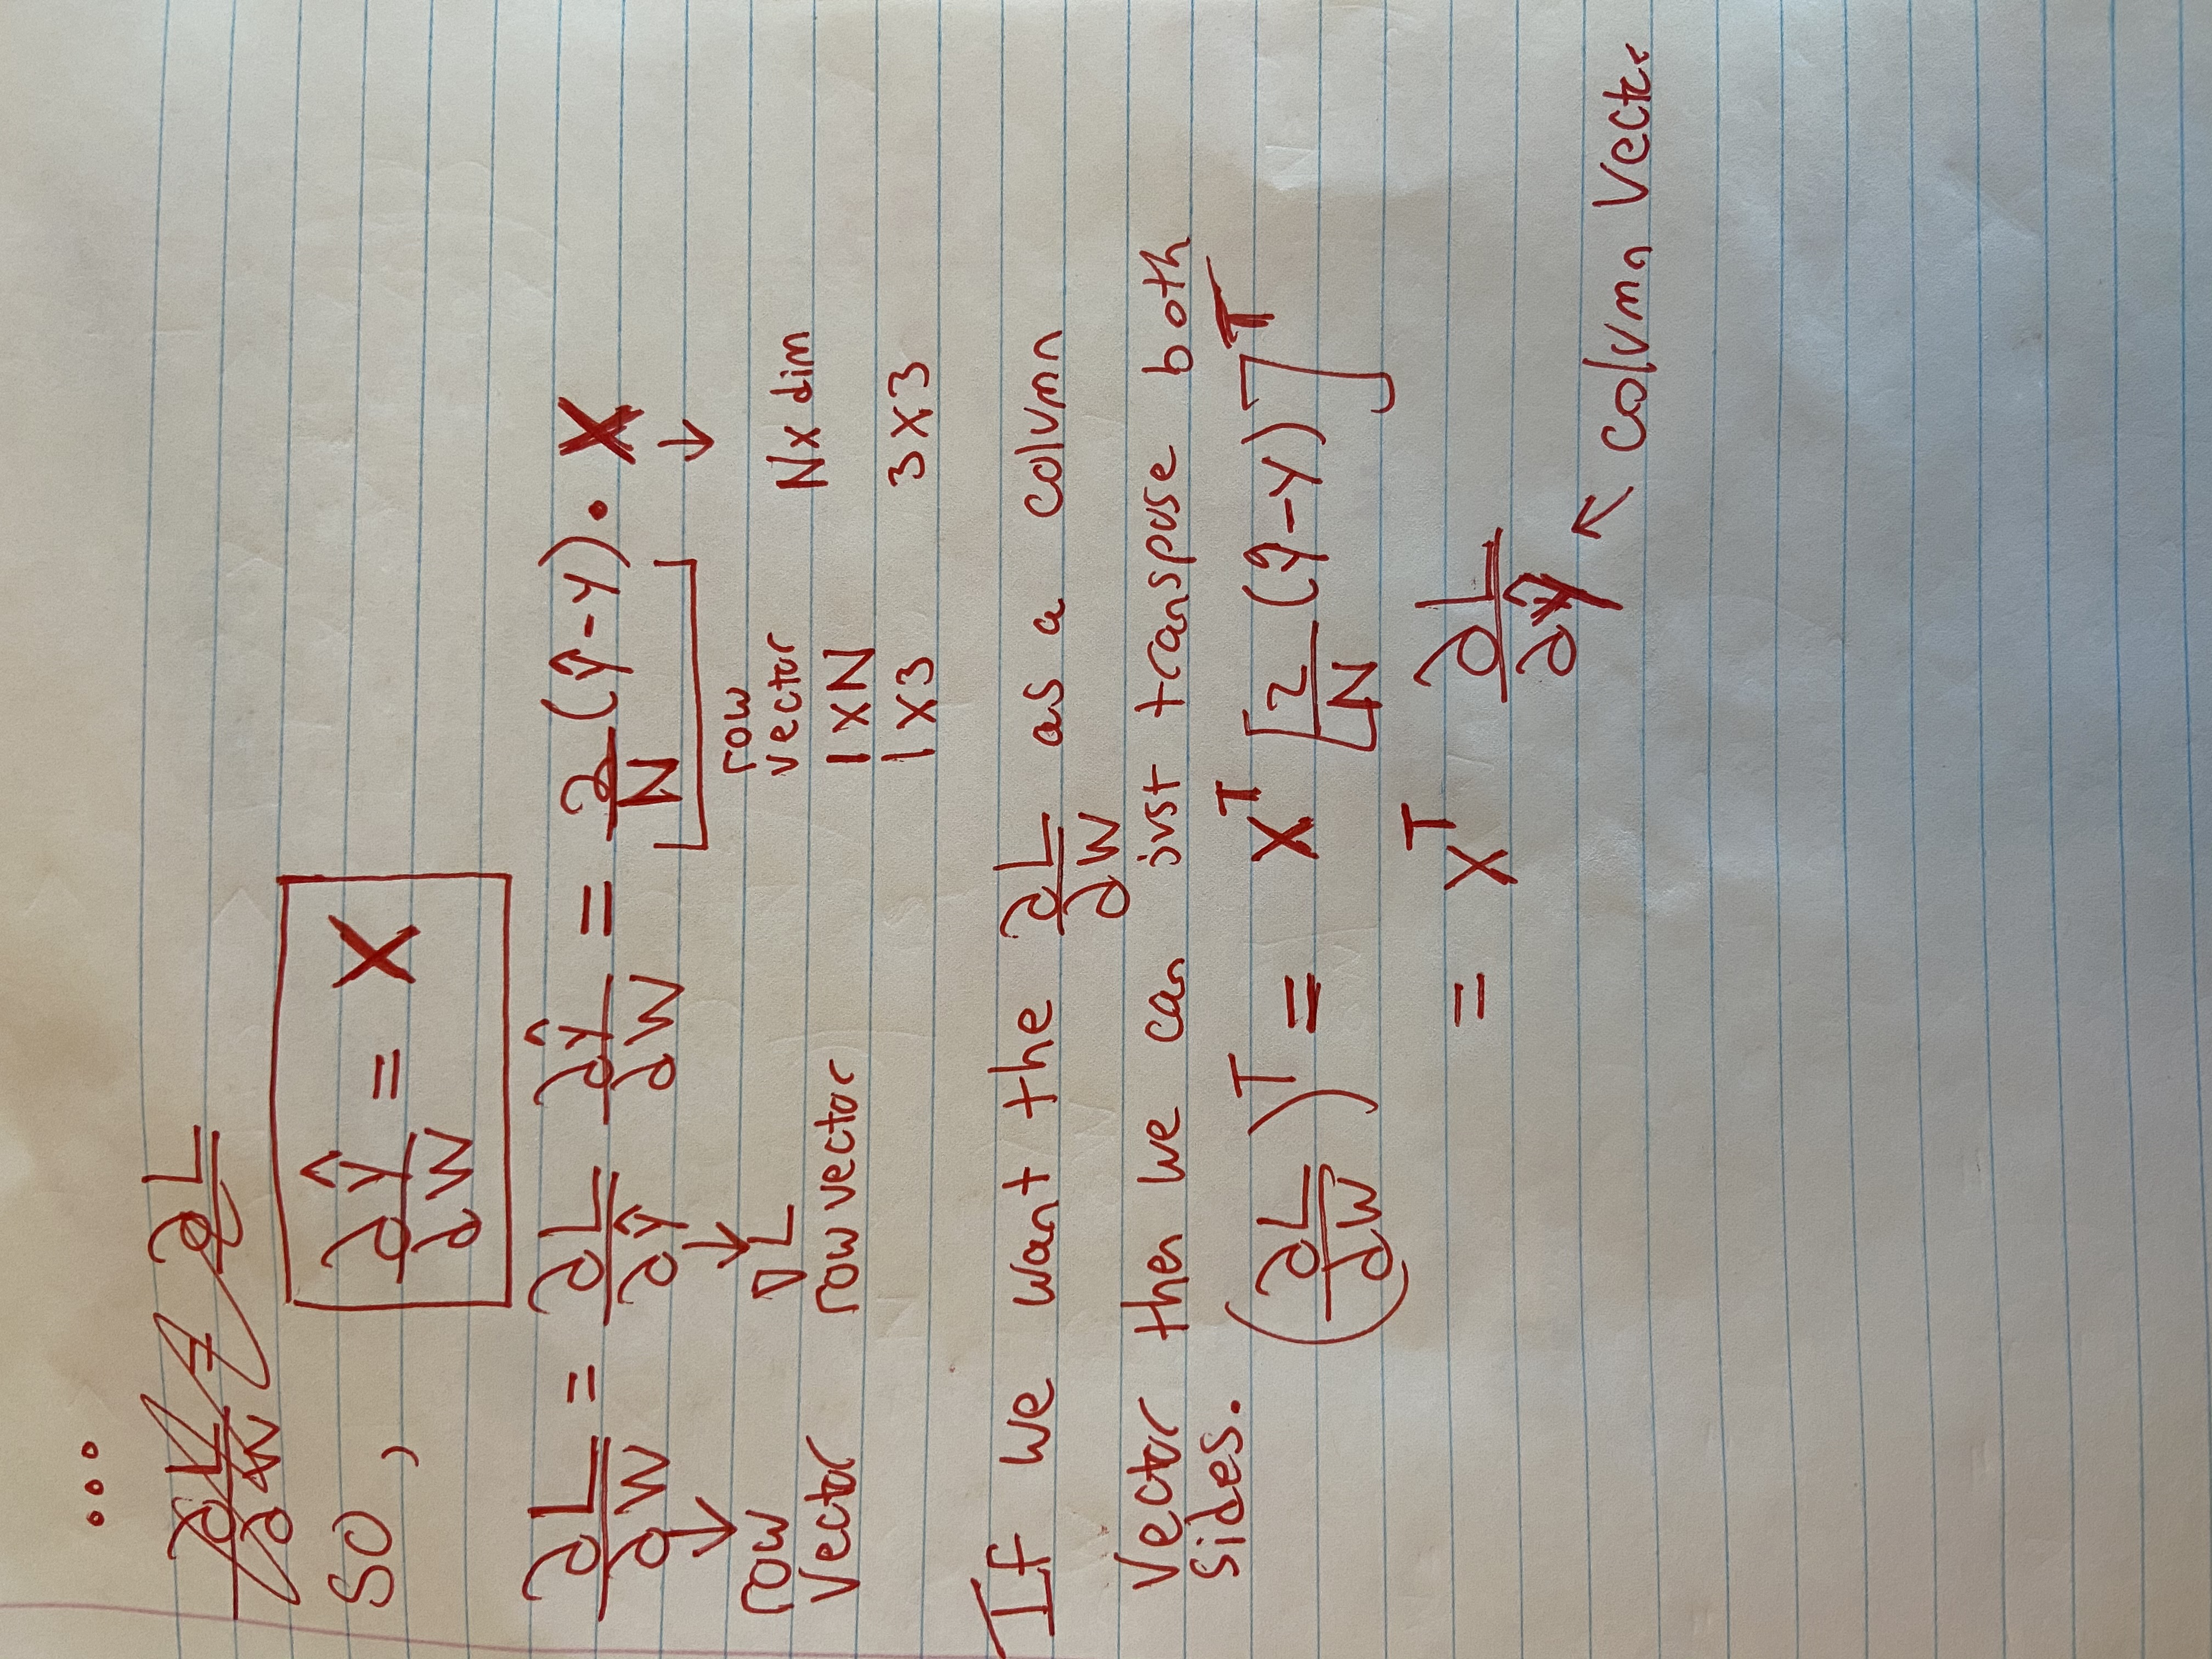 ...
∂L/∂W = ∂L
so, ∂ŷ/∂W = X
∂L/∂W = ∂L/∂ŷ ∂ŷ/∂W = 2/N (ŷ-y) · X
row vector
∇L row vector
row vector 1xN 1x3
Nx dim 3x3
If we want the ∂L/∂W as a column
vector then we can just transpose both
sides.
(∂L/∂W)^T = X^T [2/N (ŷ-y)]^T
= X^T ∂L/∂ŷ
↖ column vector